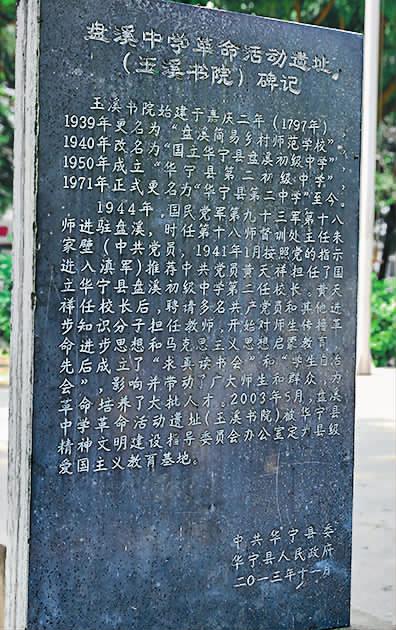 盘溪中学革命活动遗址
（玉溪书院）碑记
玉溪书院始建于嘉庆二年（1797年）
1939年更名为“盘溪简易乡村师范学校”
1940年改名为“国立华宁县盘溪初级中学”
1950年成立“华宁县第二初级中学”，
1971年正式更名为“华宁县第二中学”至今。
1944年，国民党军第九十三军第十八
师进驻盘溪，时任第十八师督训处主任朱
家壁（中共党员，1941年1月按照党的指示
进入滇军）推荐中共党员黄天祥担任了国
立华宁县盘溪初级中学第二任校长。黄天
祥任校长后，聘请多名共产党员和其他进
步知识分子担任教师，开始对师生传播革
命进步思想和马克思主义思想启蒙教育，
先后成立了“求真读书会”和“学生自治
会”，影响并带动了广大师生和群众，为
革命培养了大批人才。2003年5月，盘溪
中学革命活动遗址（玉溪书院）被华宁县
精神文明建设指导委员会办公室定为县级
爱国主义教育基地。
中共华宁县委
华宁县人民政府
二〇一三年十一月